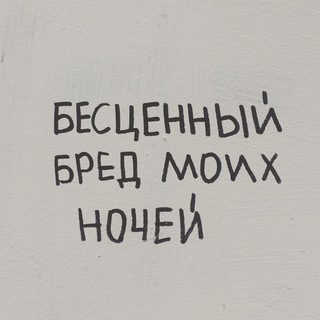 БЕСЦЕННЫЙ
БРЕД МОИХ
НОЧЕЙ